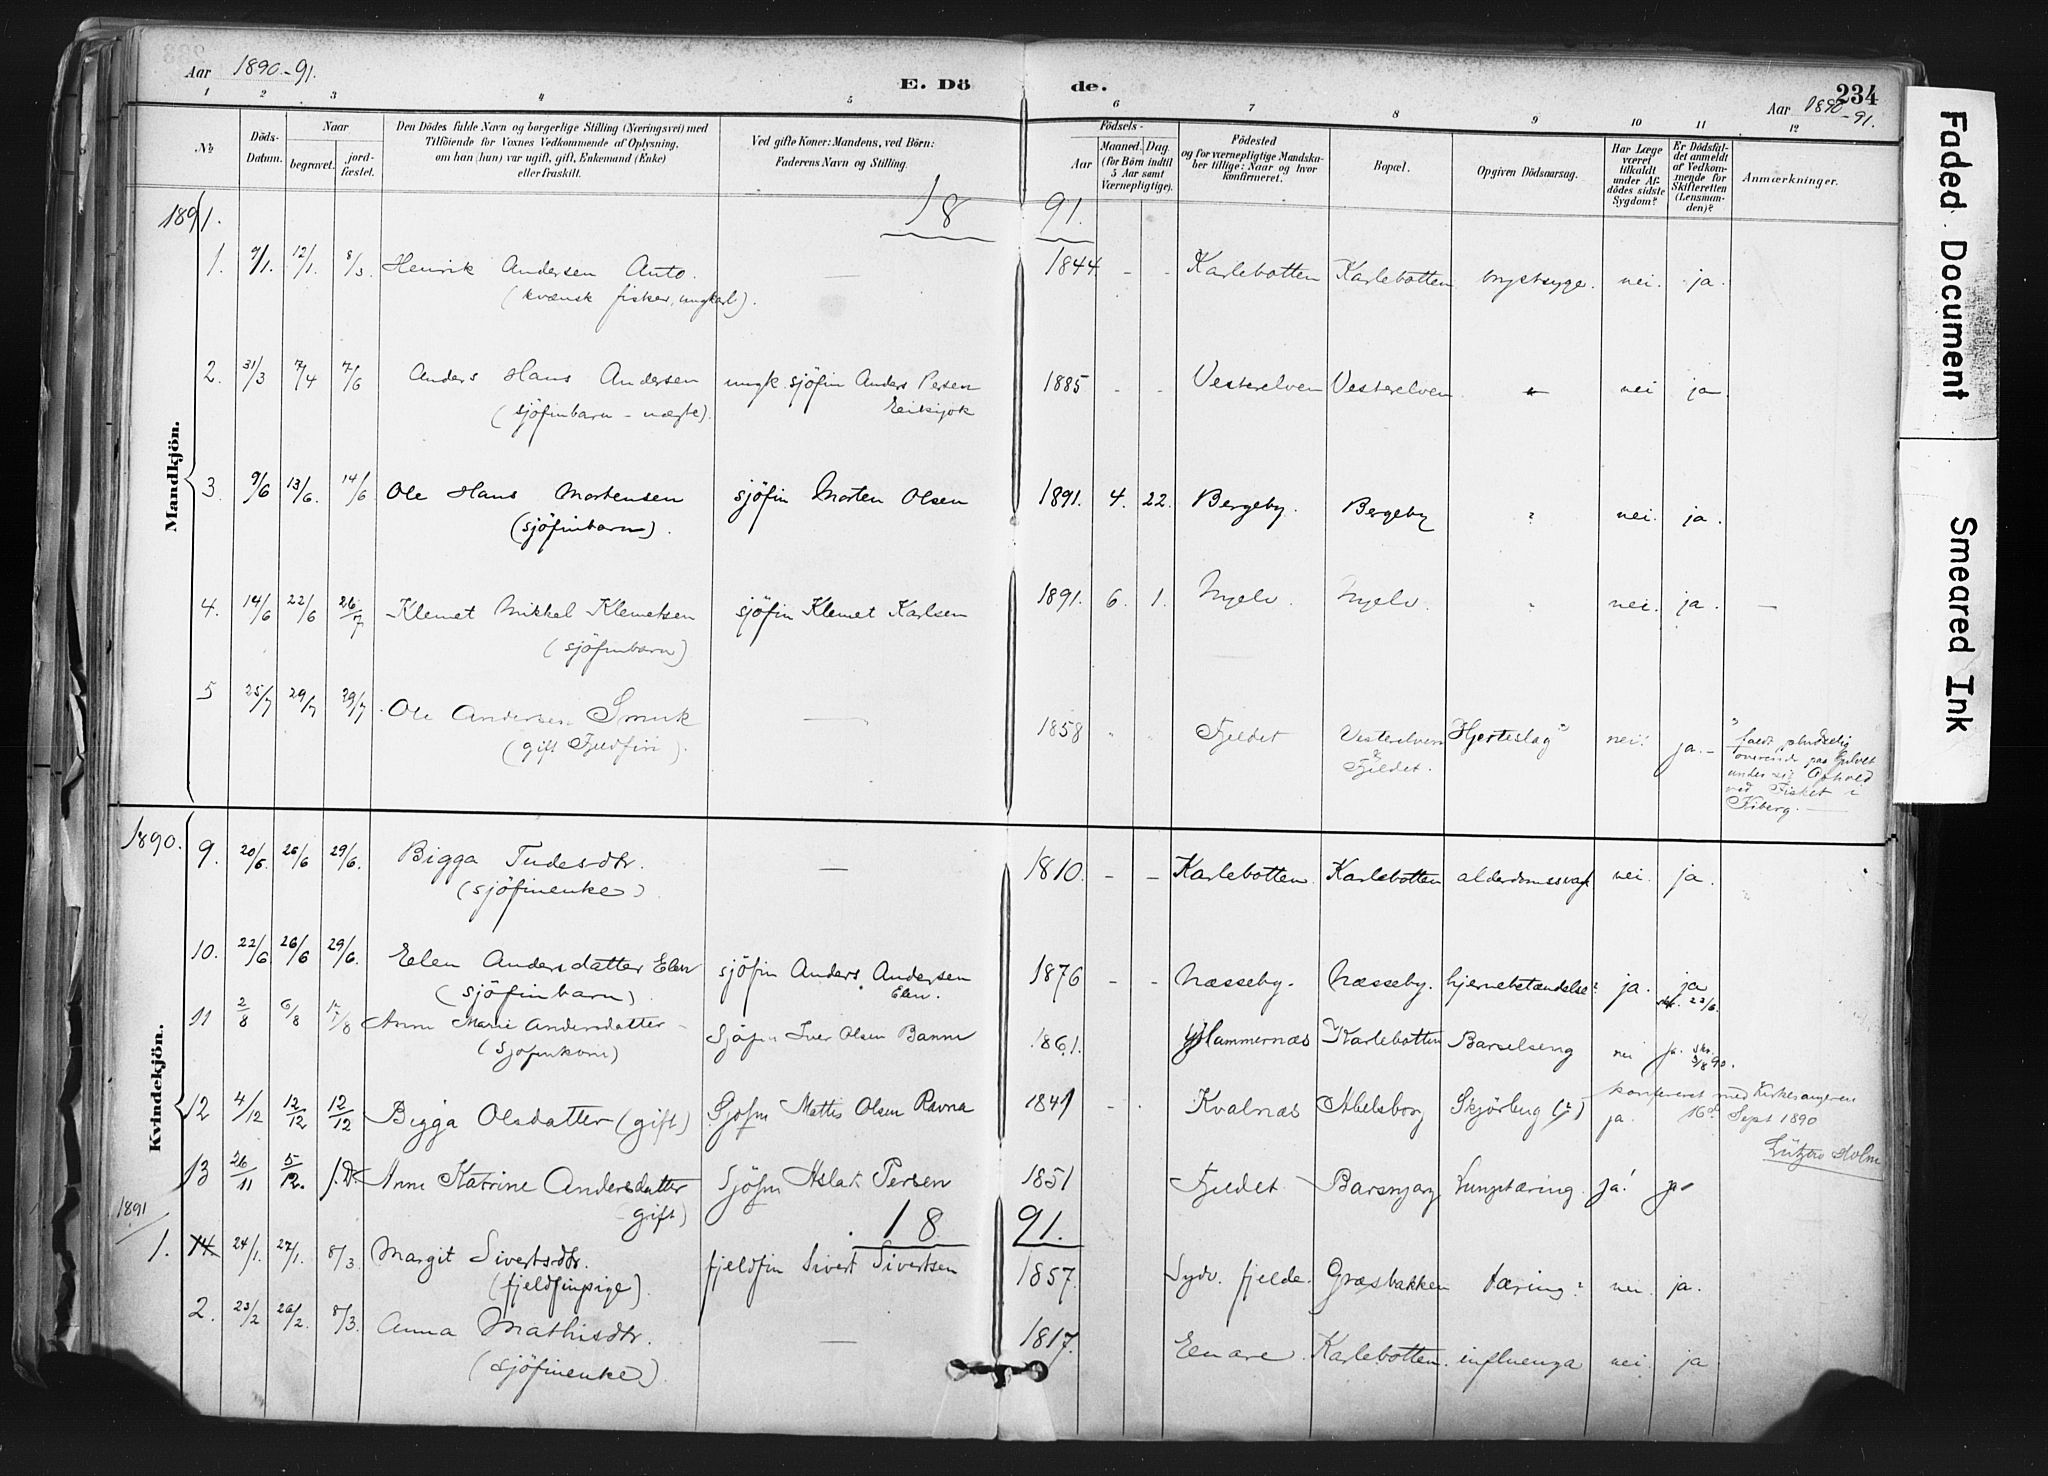 Aar 1890-91.
E. Dö de.
234
Aar 1890-91.
1 2 3 4 5 6 7 8 9 10 11 12
№
Döds-Datum.
Naar
begravet.
jord-fæstet.
Den Dödes fulde Navn og borgerlige Stilling (Næringsvei) med
Tilföiende for Voxnes Vedkommende af Oplysning,
om han (hun) var ugift, gift, Enkemand (Enke)
eller fraskilt.
Ved gifte Koner: Mandens, ved Börn:
Faderens Navn og Stilling.
Födsels-
Aar
Maaned. Dag.
(for Börn indtil
5 Aar samt
Værnepligtige).
Födested
og for værnepligtige Mandska-
ber tillige: Naar og hvor
konfirmeret.
Bopæl.
Opgiven Dödsaarsag.
Har Læge
været
tilkaldt
under Af-
dödes sidste
Sygdom?
Er Dödsfal-
det anmeldt
af Vedkom-
mende for
Skifteretten
(Lensman-
den)?
Anmærkninger.
Mandkjön.
1891. 18 91.
1. 9/1. 12/1. 8/3. Henrik Andersen Auto. — 1844 - - Karlebotten Karlebotten brystsyge. nei. ja.
(kvænsk fisker, ungkarl).
2. 31/3 7/4 7/6 Anders Hans Andersen ungk. sjöfin Anders Persen 1885 - - Vesterelven Vesterelven nei ja
(sjöfinbarn - uægte).
3. 9/6 13/6. 14/6 Ole Hans Mortensen sjöfin Morten Olsen 1891. 4. 22. Bergeby. Bergeby ? nei. ja.
(sjöfinbarn).
4. 14/6 22/6 26/7 Klemet Mikkel Klemetsen sjöfin Klemet Karlsen 1891. 6. 1. Nyelv. Nyelv. " nei. ja. —
(sjöfinbarn)
5 25/7 29/7 29/7 Ole Andersen Smuk — 1858 " " Fjeldet Vesterelven Hjerteslag" nei. ja.-
(gift Fjeldfin).
& Fjeldet.
faldt pludselig
overende paa Gulvet
under sit Ophold
ved Fisket i
Kiberg. —
Kvindekjön.
1890. 9. 20/6. 26/6 29/6. Bigga Tudesdtr. — 1810. - - Karlebotten. Karlebotten alderdomssvag. nei. ja.
(sjöfinenke)
10. 22/6 26/6 29/6. Elen Andersdatter Elen sjöfin Anders Andersen 1876 - - Næsseby. Næsseby. hjernebetændelse? ja. ja
(sjöfinbarn) Elen. 22/6.
11 2/8 6/8 17/8 Anne Marie Andersdatter - Sjöfin Iver Olsen Banne 1861. Hammernæs Karlebotten Barselseng nei ja. skr. 3/8 90.
(Sjöfinkone)
12 4/12 12/12 12/12 Bigga Olsdatter (gift) Sjöfin Mattis Olsen Ravna 1841 - . Kvalnæs Abelsborg Skjörbug (?) ja.
konfereret med Kirkesangeren
16d Sept 1890
Lützow Holm
13 26/11 5/12. Anne Katrine Andersdatter Sjöfin Aslak Persen 1851 Fjeldet. Barsnjarg Lungetæring. ja! ja
gift)
1891 18 91.
1. 14. 24/1. 27/1. 8/3. Margit Sivertsdtr. fjeldfin Sivert Sivertsen 1857. Sydv. fjelde. Græsbakken tæring? nei. ja.
(fjeldfinpige).
2. 23/2 26/2. 8/3. Anna Mathisdtr. — 1817. Enare. Karlebotten. influenza nei. ja
(sjöfinenke).
Faded Document
Smeared Ink